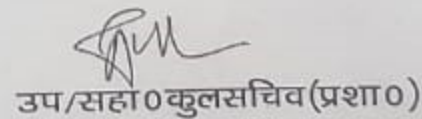 उप/सहा०कुलसचिव(प्रशा०)